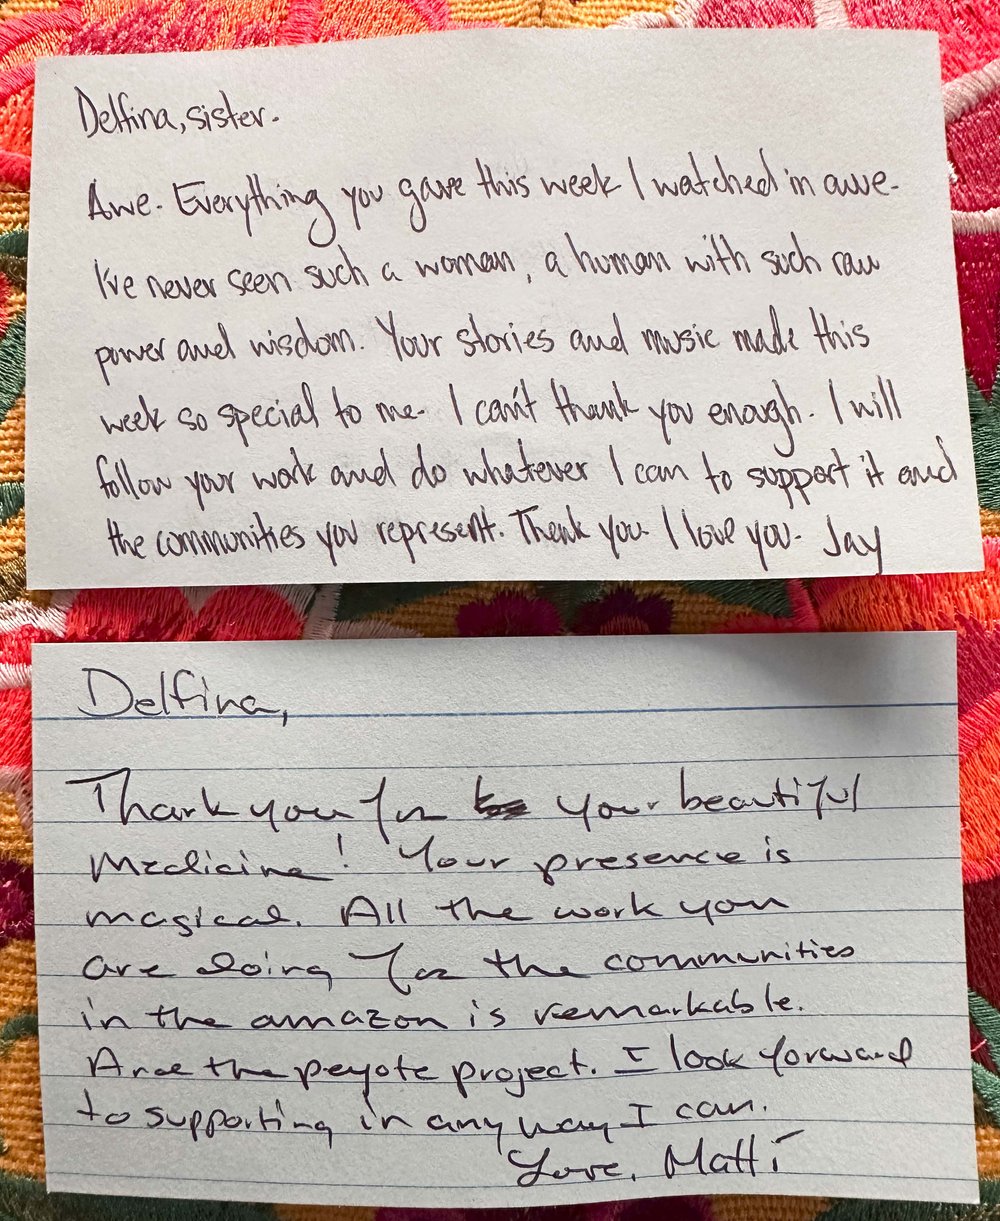 Delfina, sister.
Awe. Everything you gave this week I watched in awe.
I've never seen such a woman, a human with such raw
power and wisdom. Your stories and music made this
week so special to me. I can't thank you enough. I will
follow your work and do whatever I can to support it and
the communities you represent. Thank you. I love you. Jay
Delfina,
Thank you for your beautiful
medicine! Your presence is
magical. All the work you
are doing for the communities
in the amazon is remarkable.
And the peyote project. I look forward
to supporting in any way I can.
Love, Matti